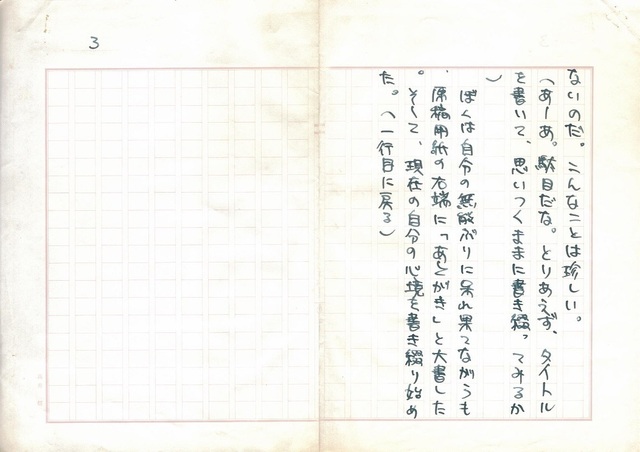 3
ないのだ。こんなことは珍しい。
（あーあ。駄目だな。とりあえず、タイトル
を書いて、思いつくままに書き綴ってみるか
）
ぼくは自分の無能ぶりに呆れ果てながらも
原稿用紙の右端に「あとがき」と大書した
。そして、現在の自分の心境を書き綴り始め
た。（一行目に戻る）